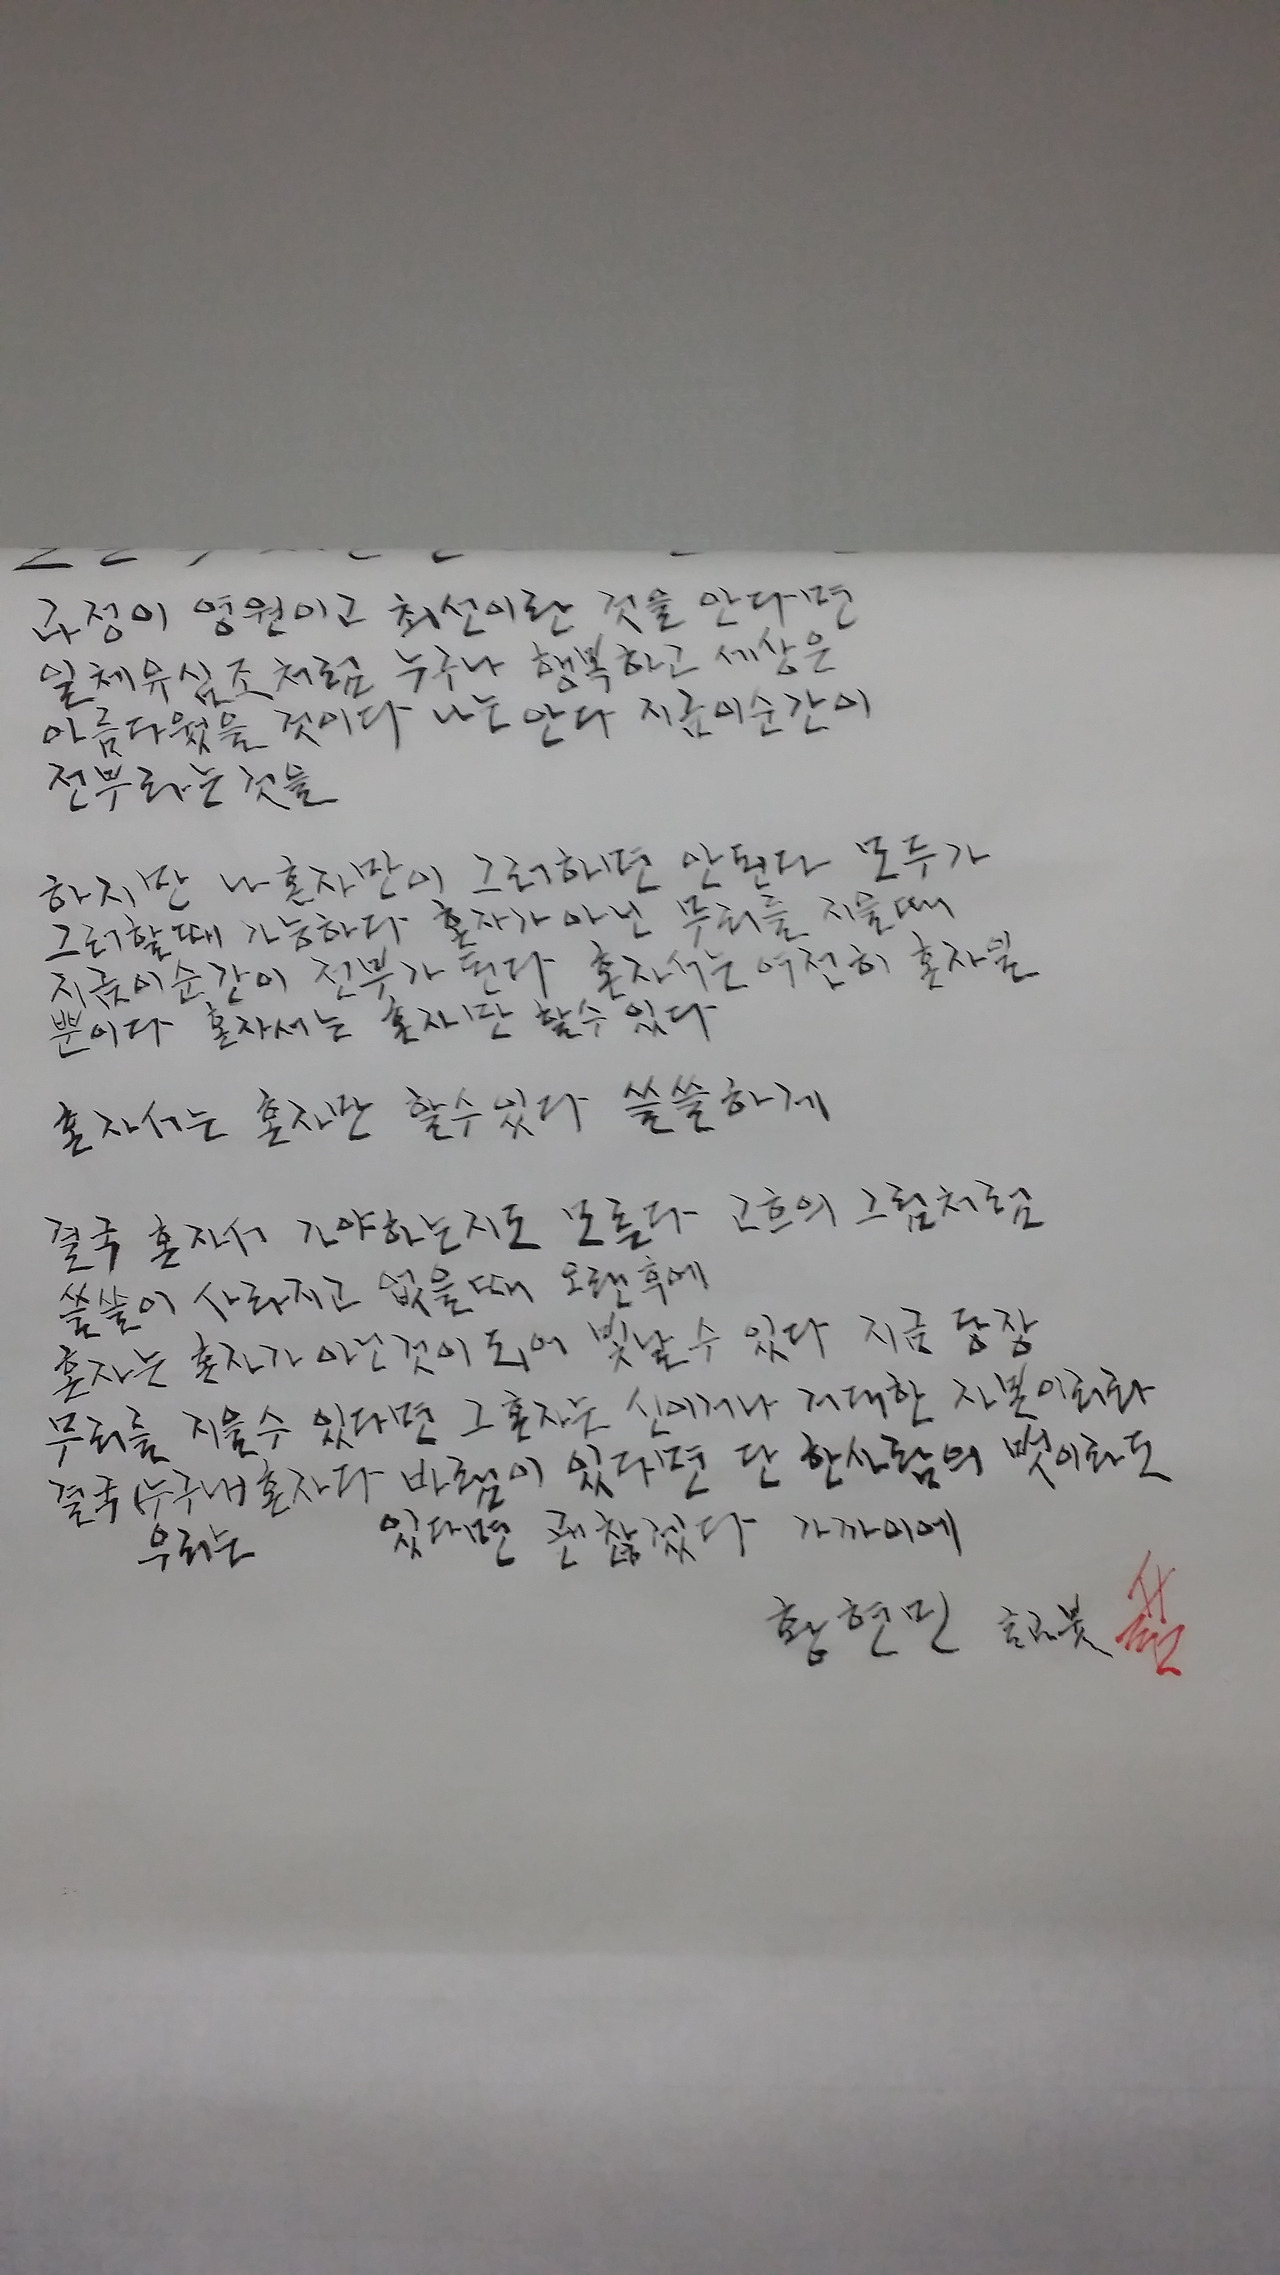 과정이 영원이고 최선이란 것을 안다면
일체유심조처럼 누구나 행복하고 세상은
아름다웠을 것이다 나는 안다 지금이순간이
전부라는 것을
하지만 나 혼자만이 그러하면 안된다 모두가
그러할때 가능하다 혼자가 아닌 무리를 지을때
지금이순간이 전부가 된다 혼자서는 여전히 혼자일
뿐이다 혼자서는 혼자만 할수있다
혼자서는 혼자만 할수있다 쓸쓸하게
결국 혼자서 가야하는지도 모른다 고흐의 그림처럼
쓸쓸이 사라지고 없을때 오랜후에
혼자는 혼자가 아닌것이 되어 빛날수 있다 지금 당장
무리를 지을수 있다면 그혼자는 신이거나 거대한 자본이리라
결국 (누구나) 혼자다 바램이 있다면 단 한사람의 벗이라도
우리는 있다면 괜찮겠다 가까이에
황현민